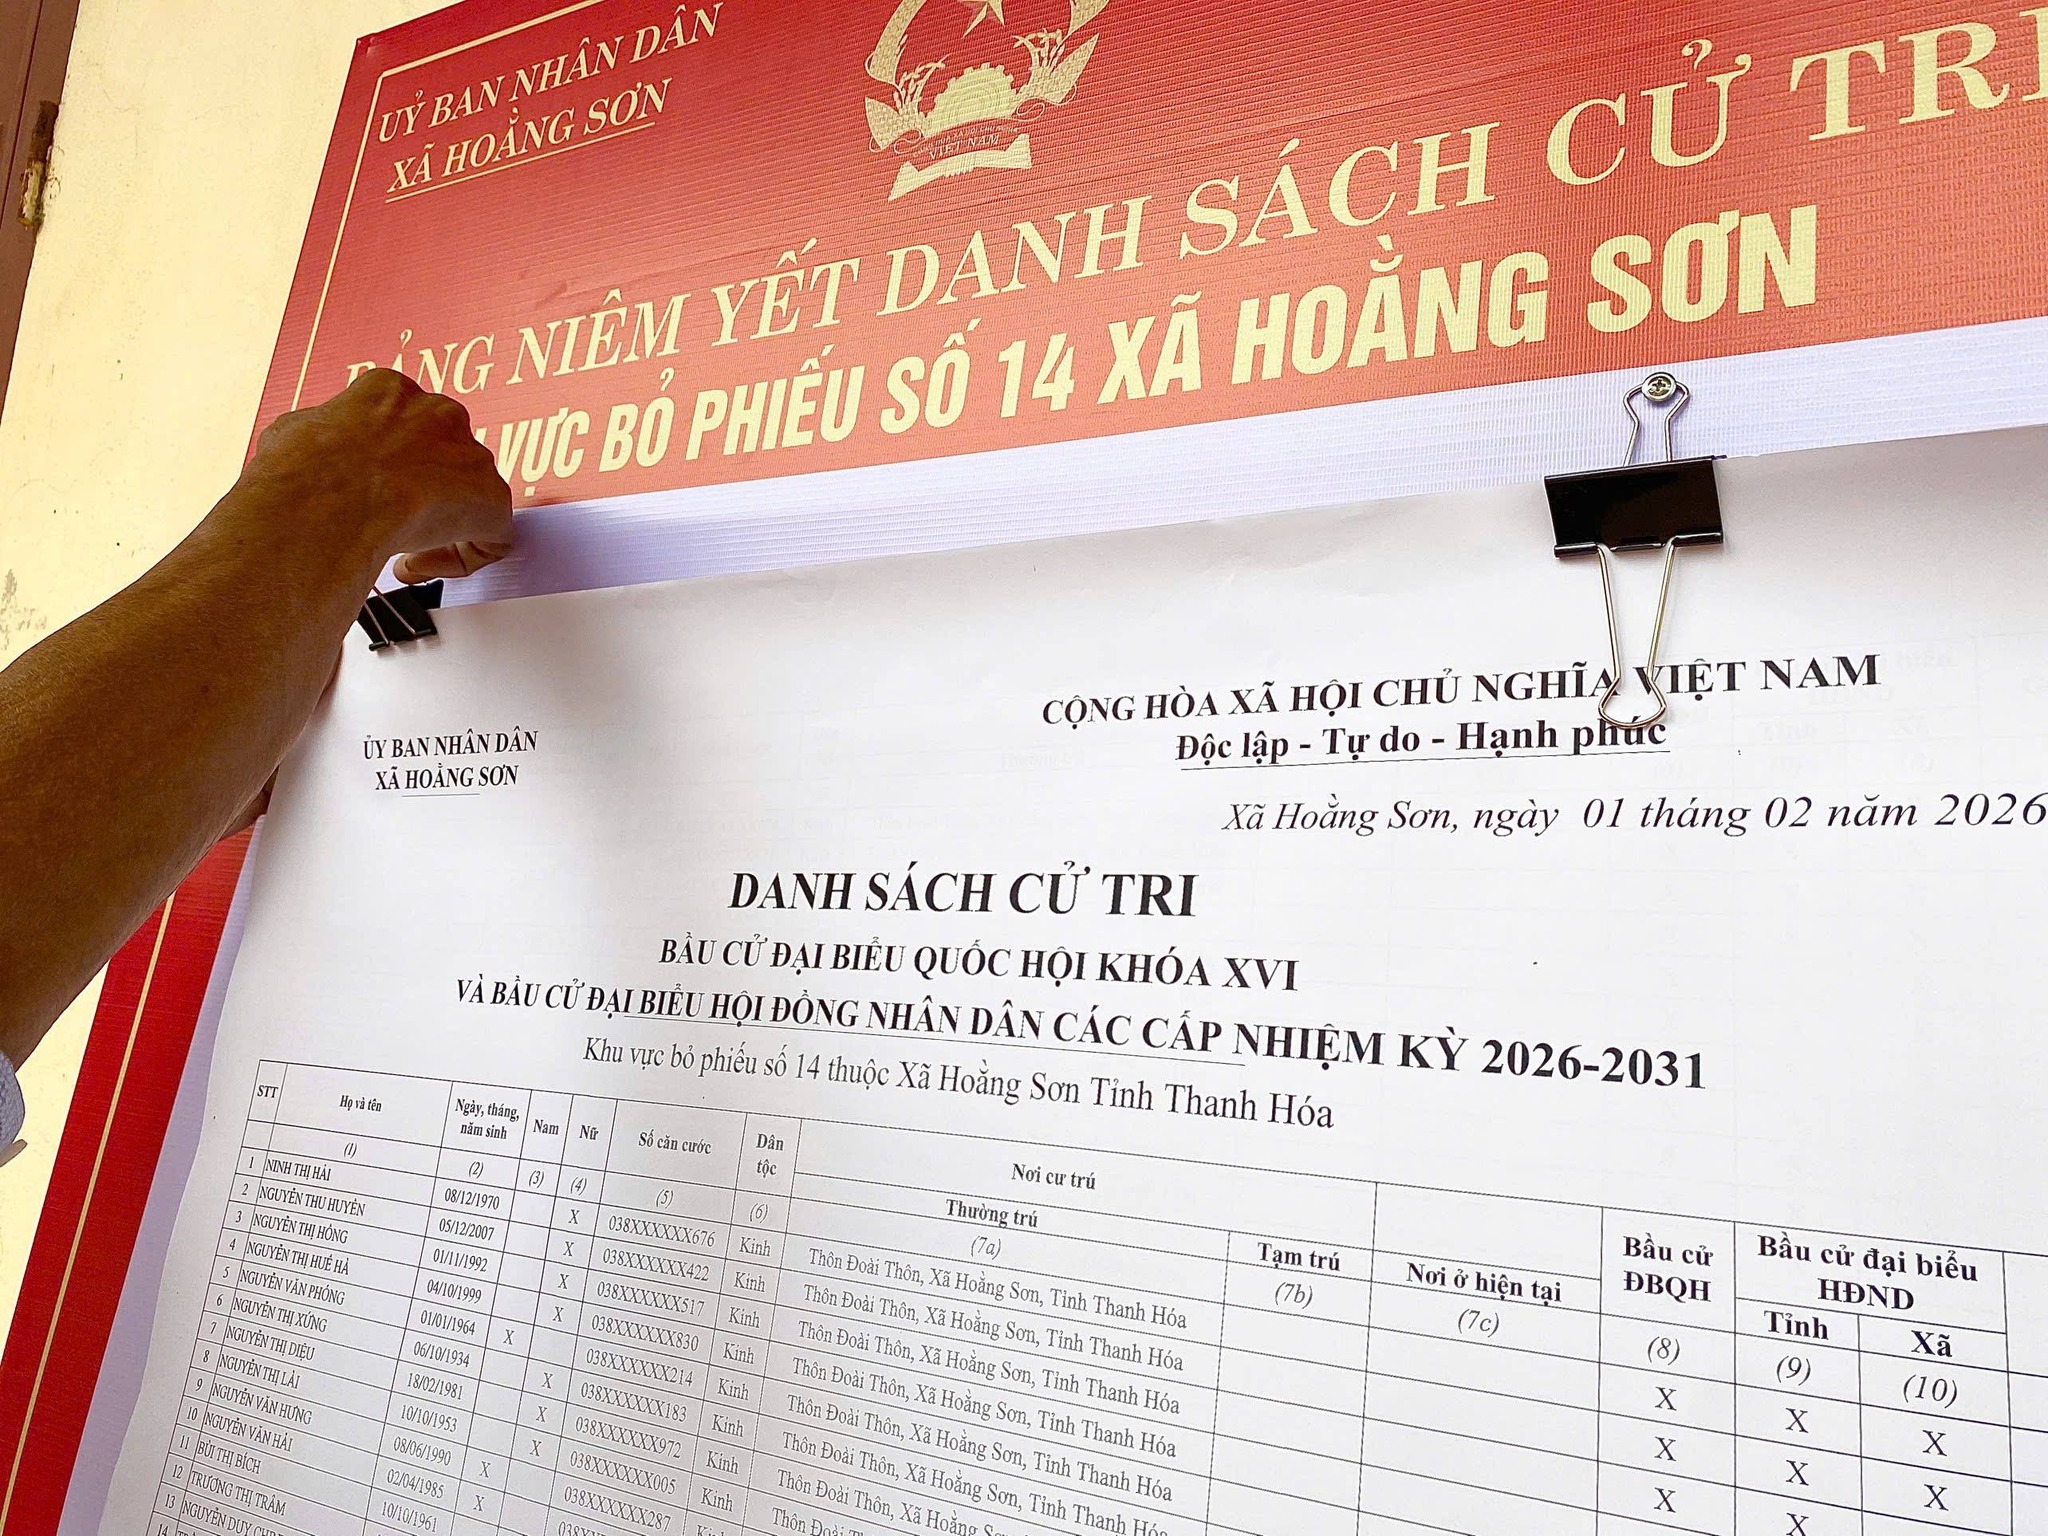 UỶ BAN NHÂN DÂN
XÃ HOẰNG SƠN
VIỆT NAM
BẢNG NIÊM YẾT DANH SÁCH CỬ TRI
VỰC BỎ PHIẾU SỐ 14 XÃ HOẰNG SƠN
ỦY BAN NHÂN DÂN
XÃ HOẰNG SƠN
CỘNG HÒA XÃ HỘI CHỦ NGHĨA VIỆT NAM
Độc lập - Tự do - Hạnh phúc
Xã Hoằng Sơn, ngày 01 tháng 02 năm 2026
DANH SÁCH CỬ TRI
BẦU CỬ ĐẠI BIỂU QUỐC HỘI KHÓA XVI
VÀ BẦU CỬ ĐẠI BIỂU HỘI ĐỒNG NHÂN DÂN CÁC CẤP NHIỆM KỲ 2026-2031
Khu vực bỏ phiếu số 14 thuộc Xã Hoằng Sơn Tỉnh Thanh Hóa
STT Họ và tên Ngày, tháng, năm sinh Nam Nữ Số căn cước Dân tộc Nơi cư trú Bầu cử ĐBQH Bầu cử đại biểu HĐND
Thường trú Tạm trú Nơi ở hiện tại Tỉnh Xã
(1) (2) (3) (4) (5) (6) (7a) (7b) (7c) (8) (9) (10)
1 NINH THỊ HẢI 08/12/1970 X 038XXXXXX676 Kinh Thôn Đoài Thôn, Xã Hoằng Sơn, Tỉnh Thanh Hóa X X X
2 NGUYỄN THU HUYỀN 05/12/2007 X 038XXXXXX422 Kinh Thôn Đoài Thôn, Xã Hoằng Sơn, Tỉnh Thanh Hóa X X X
3 NGUYỄN THỊ HỒNG 01/11/1992 X 038XXXXXX517 Kinh Thôn Đoài Thôn, Xã Hoằng Sơn, Tỉnh Thanh Hóa X X
4 NGUYỄN THỊ HUẾ HÀ 04/10/1999 X 038XXXXXX830 Kinh Thôn Đoài Thôn, Xã Hoằng Sơn, Tỉnh Thanh Hóa
5 NGUYỄN VĂN PHÓNG 01/01/1964 X 038XXXXXX214 Kinh Thôn Đoài Thôn, Xã Hoằng Sơn, Tỉnh Thanh Hóa
6 NGUYỄN THỊ XỨNG 06/10/1934 X 038XXXXXX183 Kinh Thôn Đoài Thôn, Xã Hoằng Sơn, Tỉnh Thanh Hóa
7 NGUYỄN THỊ DIỆU 18/02/1981 X 038XXXXXX972 Kinh Thôn Đoài Thôn, Xã Hoằng Sơn, Tỉnh Thanh
8 NGUYỄN THỊ LÀI 10/10/1953 X 038XXXXXX005 Kinh Thôn Đoài Thôn, Xã Hoằng
9 NGUYỄN VĂN HƯNG 08/06/1990 X 038XXXXXX287 Thôn Đoài
10 NGUYỄN VĂN HẢI 02/04/1985 X
11 BÙI THỊ BÍCH 10/10/1961
12 TRƯƠNG THỊ TRÂM
13 NGUYỄN DUY
14